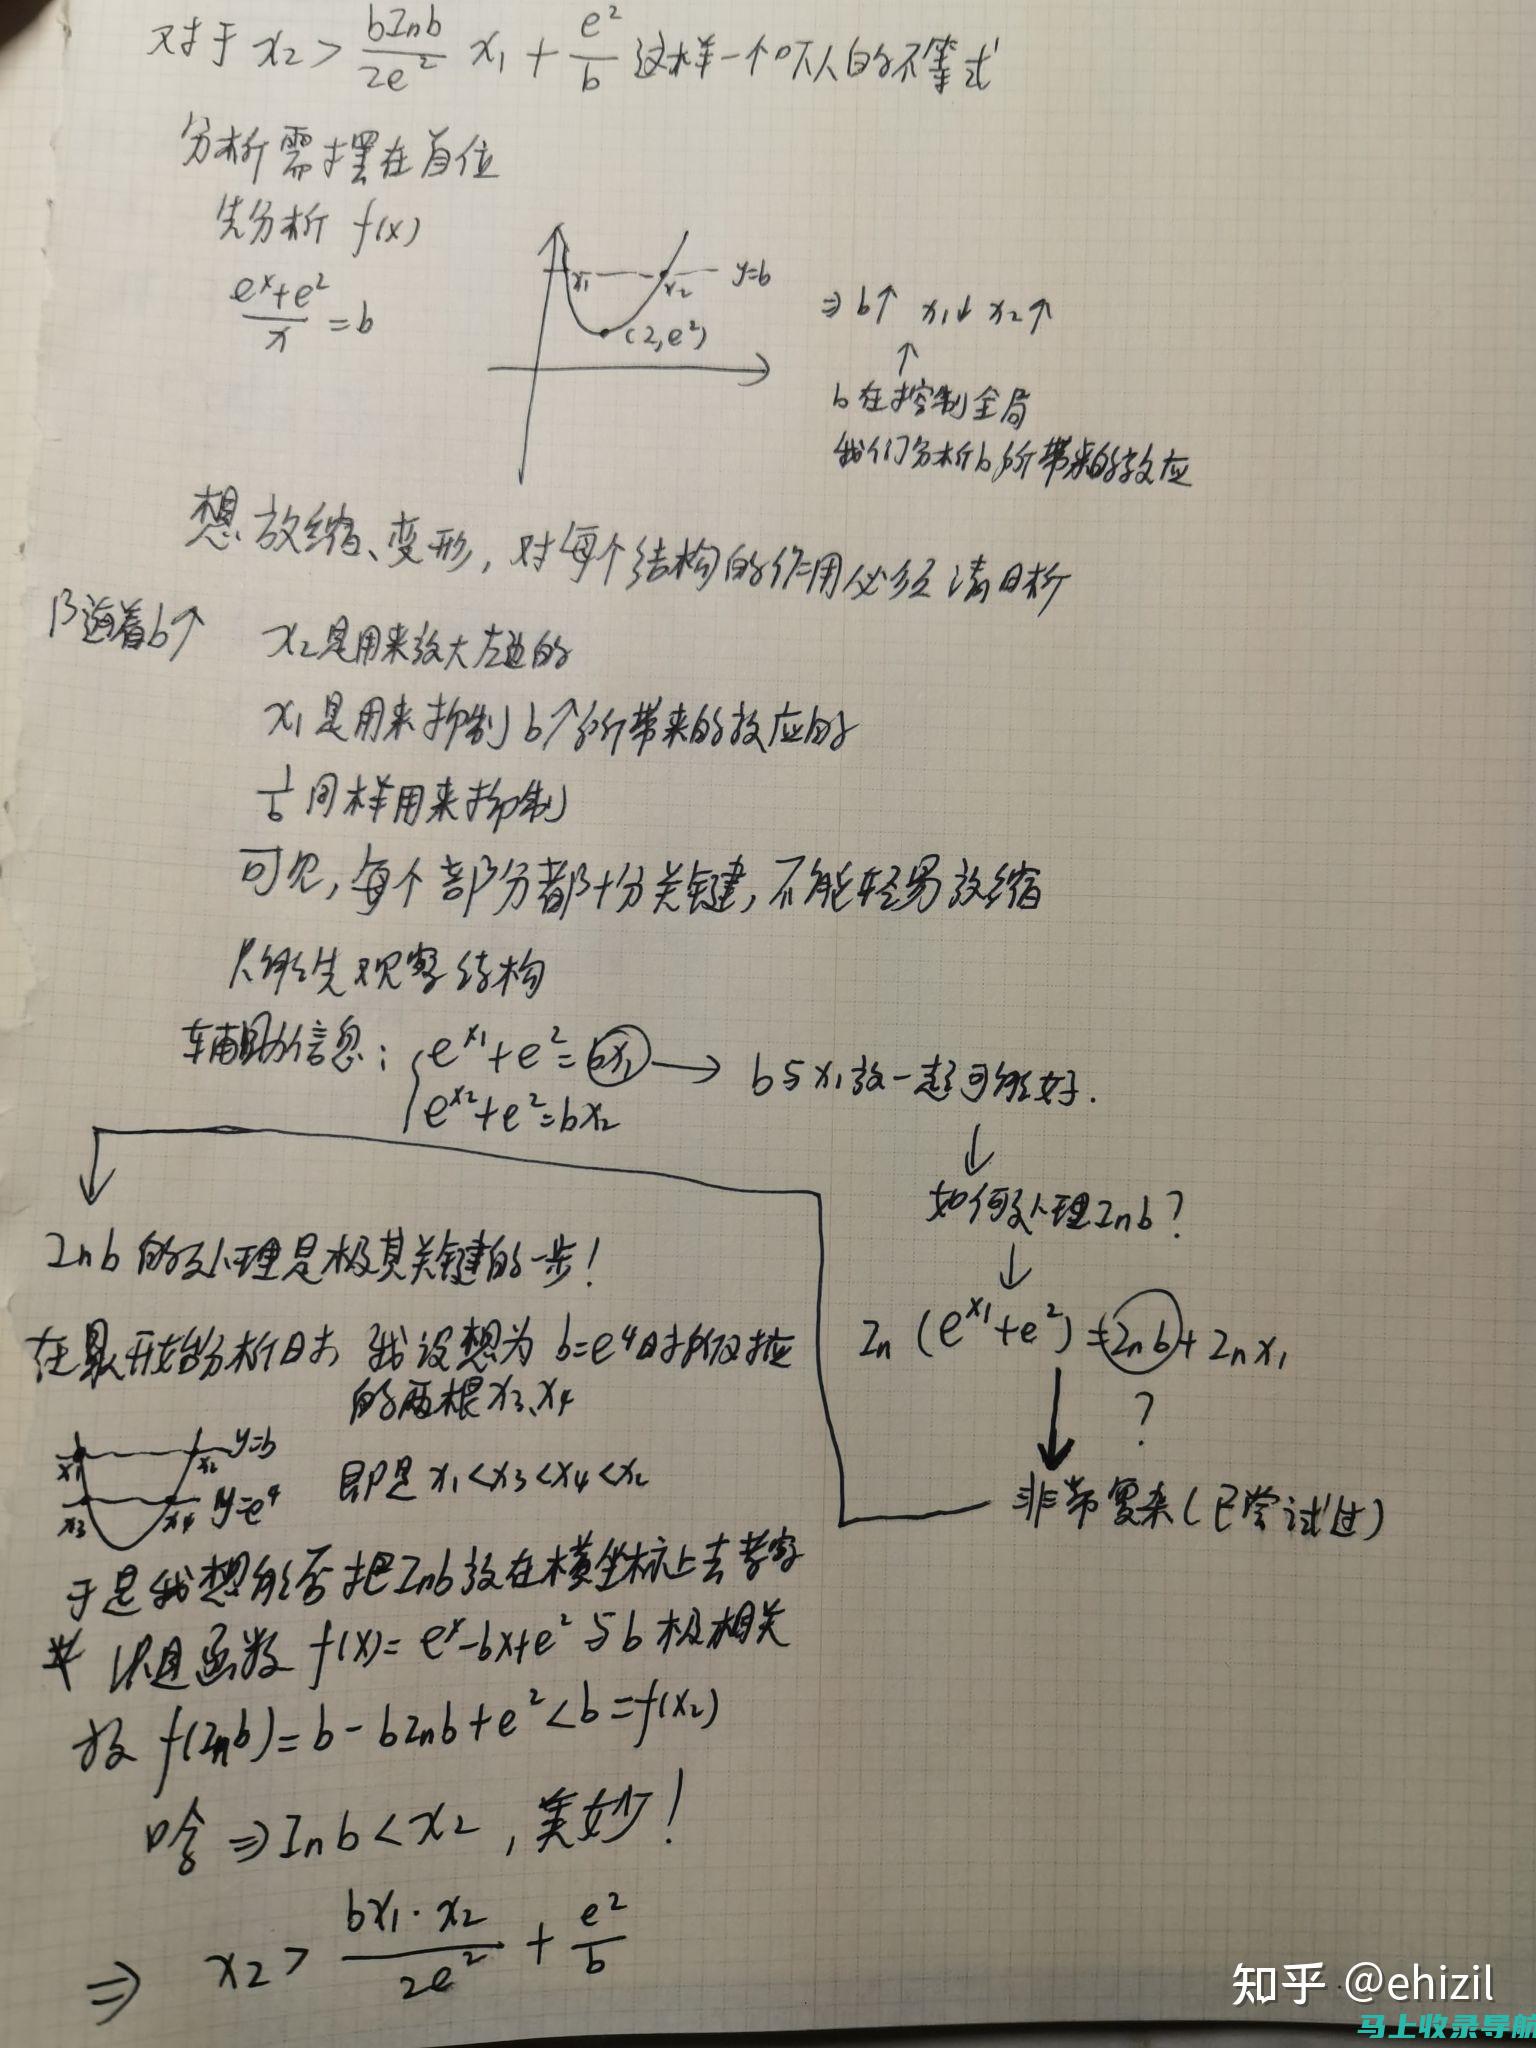 对于 x₂ > \frac{blnb}{2e²} x₁ + \frac{e²}{b} 这样一个吓人的不等式
分析需摆在首位
先分析 f(x)
\frac{eˣ+e²}{x} = b
x₁ x₂ y=b
(2,e²)
⇒ b↑ x₁↓ x₂↑
↑
b在控制全局
我们分析b所带来的效应
想放缩、变形,对每个结构的作用必须清晰
随着b↑
x₂是用来放大左边的
x₁是用来抑制b↑所带来的效应的
\frac{1}{b}同样用来抑制
可见,每个部分都十分关键,不能轻易放缩
只能先观察结构
辅助信息: { e^{x₁}+e²=bx₁ → b与x₁放一起可能好.
e^{x₂}+e²=bx₂
↓
如何处理lnb?
↓
ln(e^{x₁}+e²)=lnb+lnx₁
?
非常复杂(已尝试过)
lnb的处理是极其关键的一步!
在最开始分析时,我设想为 b=e⁴时所对应
的两根x₃、x₄
x₁ x₂ y=b
x₃ x₄ y=e⁴
即是 x₁<x₃<x₄<x₂
于是我想能否把lnb放在横坐标上去考察
并且函数 f(x)=eˣ-bx+e² 与b极相关
故 f(lnb)=b-blnb+e²<b=f(x₂)
哈 ⇒ lnb<x₂,美妙!
⇒ x₂ > \frac{bx₁·x₂}{2e²} + \frac{e²}{b}
知乎 @ehizil
马上收录导航